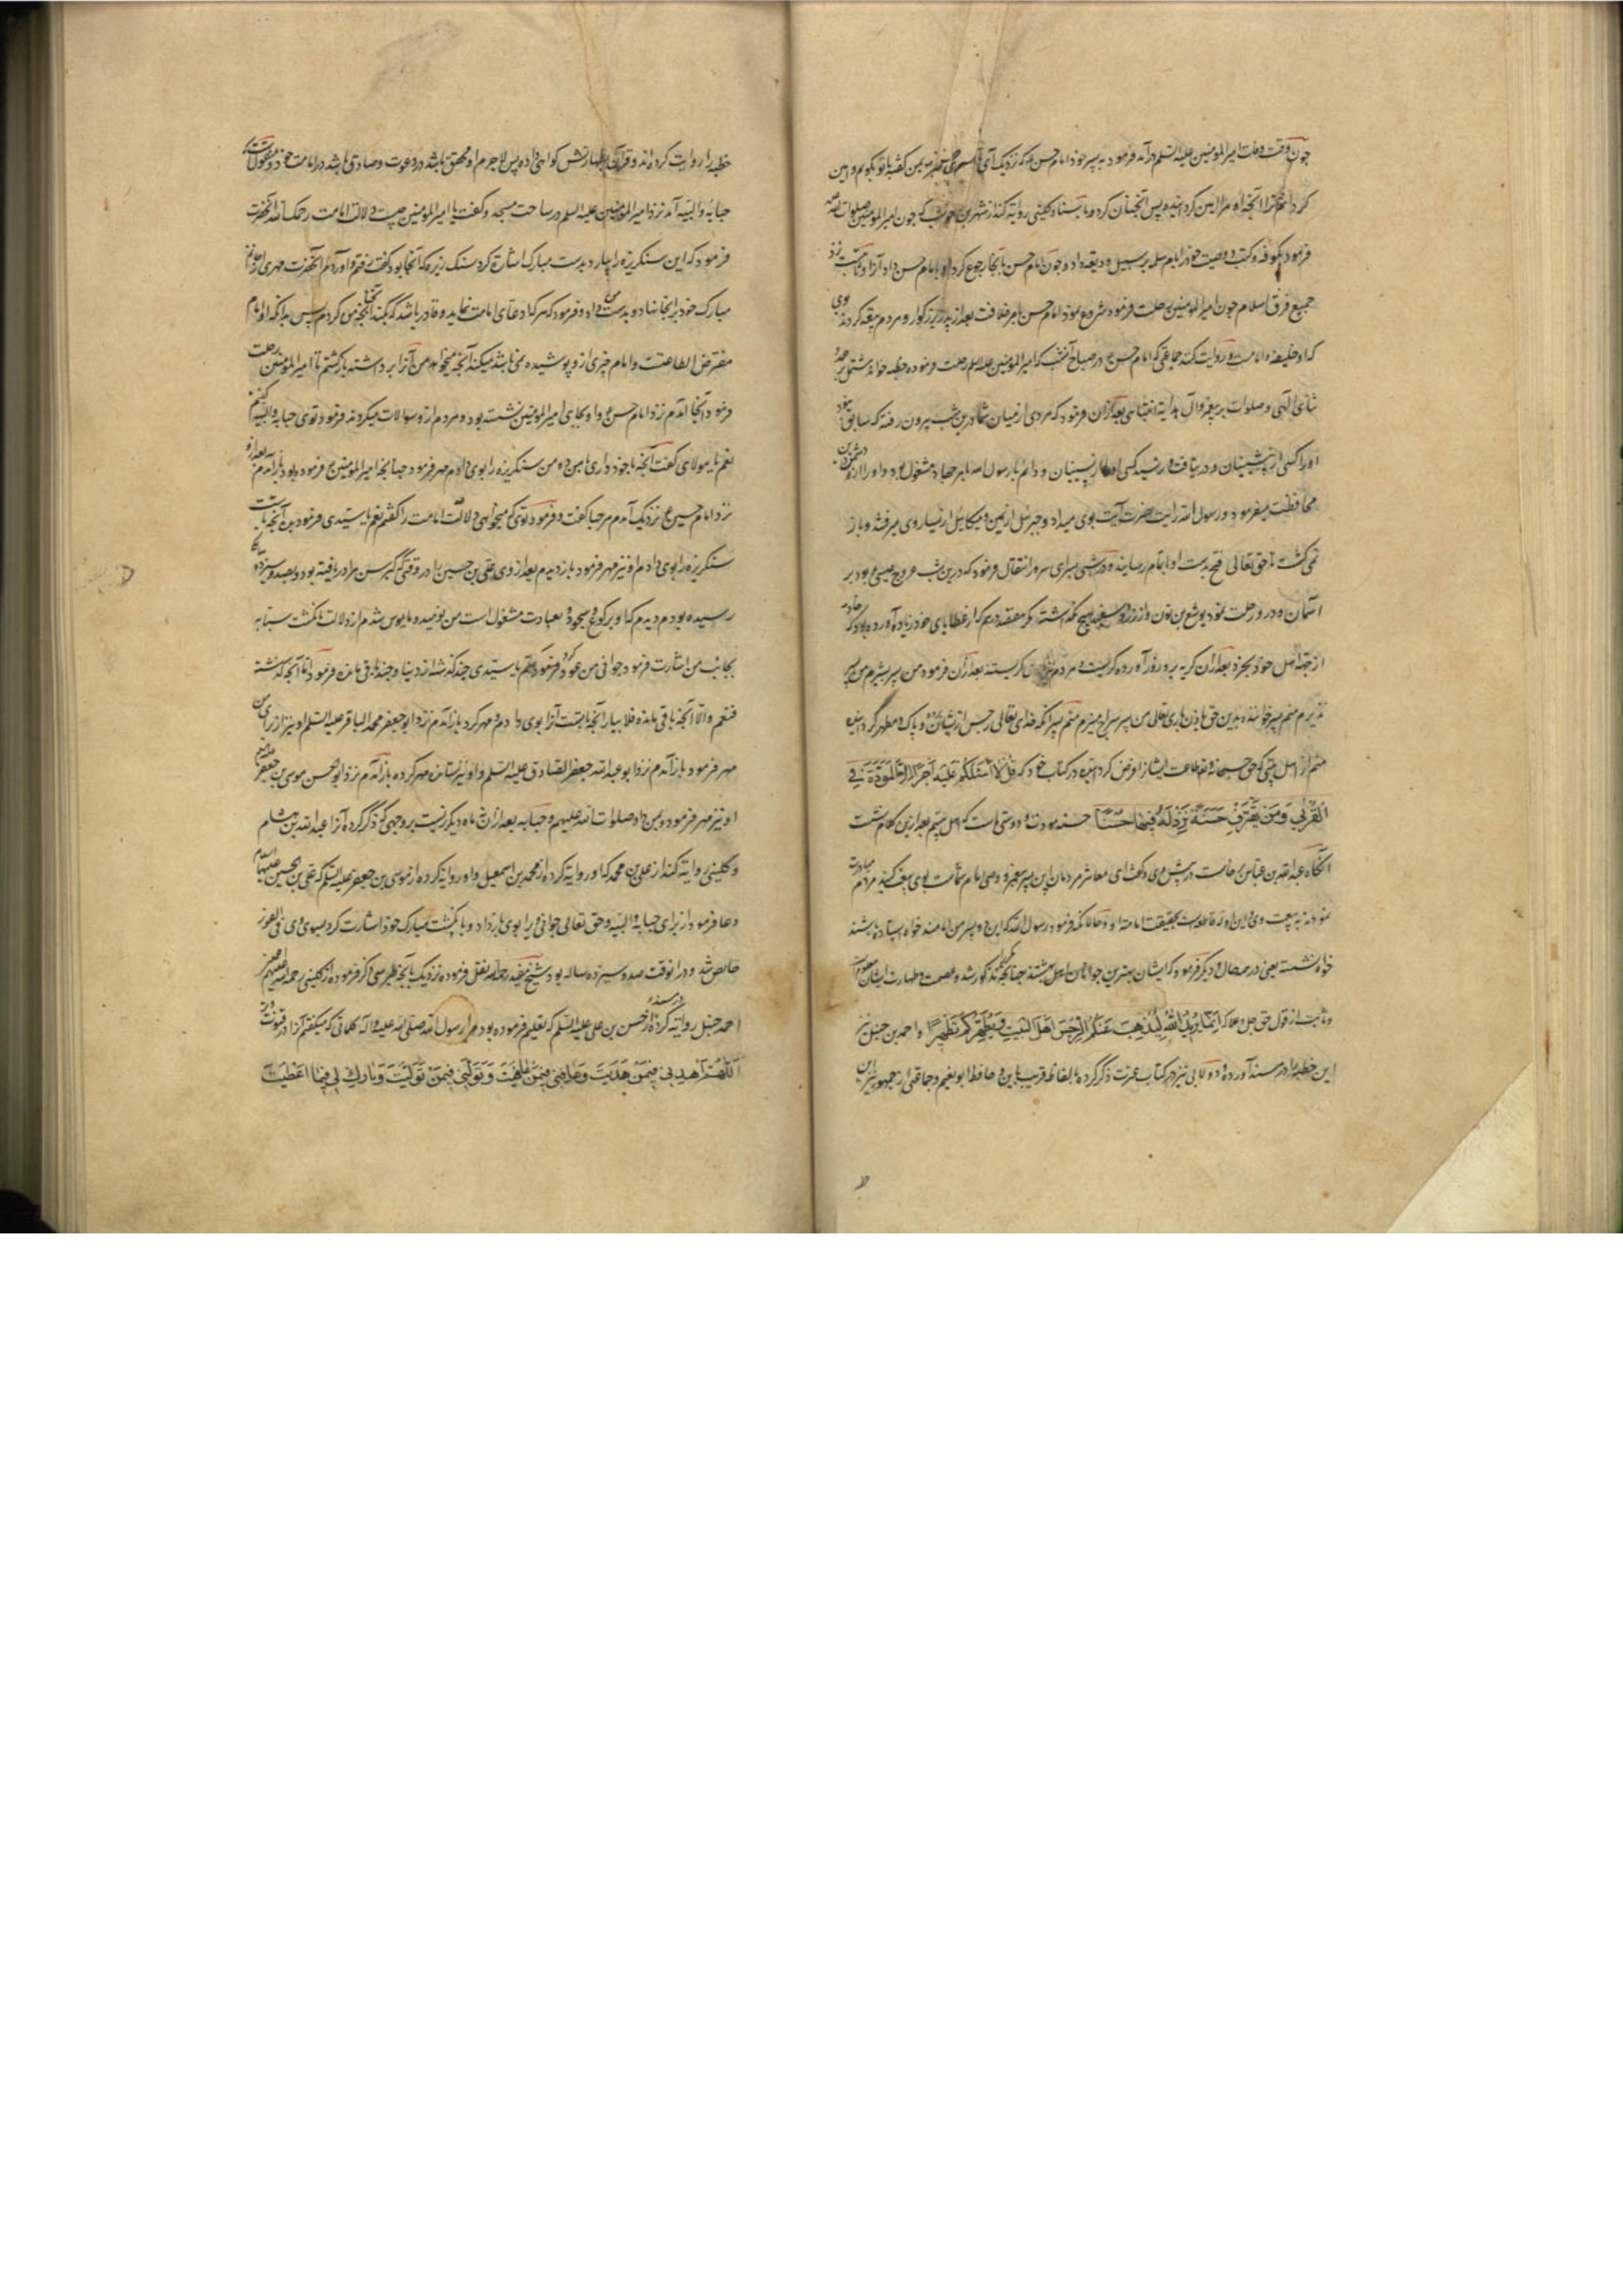 چون وقت وفات امیر المومنین علیه السلم درآمد فرمود به پسر خود امام حسن که نزدیک آی بمن بتو بکویم و امین
کردانم ترا آنچه او مرا امین کردانیده پس آنچنان کرد و باسناد کلینی روایة کند از شهر بن حوشب که چون امیر المومنین صلوات الله
فرمود بکوفه وکتب و وصیت خود را بام سلمه بر سبیل ودیعه داد و چون امام حسن بآنجا رجوع کرد او بامام حسن داد آنرا نزد
جمیع فرق اسلام چون امیر المومنین رحلت فرمود شروع نمود امام حسن بامر خلافت بعد از پدر بزرکوار و مردم بیعة کردند بوی
که او خلیفه و امامست و روایت کنند جماعتی که امام حسن در صباح آن شب که امیر المومنین علیه السلم رحلت فرموده خطبه خواند مشتمل بر حمد
ثنای الهی وصلوات بر پیغمبر وآل بعد ازان فرمود که مردی از میان شما درین شب بیرون رفته که سابق نبود
اورا کسی از پیشینیان و در نیافت و نرسید کسی از پسینیان و دائم با رسول الله بامر جهاد مشغول بود و اورا از دشمنان
محافظت میفرمود و رسول الله رایت بوی میداد و جبرئیل از یمین و میکائیل از یسار وی میرفتند و باز
نمی کشت تا حق تعالی فتح بدست او باتمام رساینده و در شبی بسرای سرور انتقال فرمود که درین شب عروج عیسی بود بر
آسمان و در و رحلت نمود یوشع بن نون و از زر و سفید هیچ نکذاشته مکر هفتصد درهم که از عطایای خود زیاده آورده بود که خادمه
از جهة اهل خود بخرد بعد ازان کریه برو زور آورده کریست و مردم کریستند بعد ازان فرمود من پسر بشیرم من پسر
نذیرم منم پسر خواننده بدین حق باذن باری تعالی من پسر سراج منیرم منم پسر آنکه خدای تعالی رجس از یشان برده و پاک و مطهر کردانیده
منم از اهل بیتی که حق سبحانه و تعالی طاعت ایشانرا فرض کردانیده در کتاب خود که قُلْ لَا اَسْئَلُكُمْ عَلَيْهِ اَجْرًا اِلَّا الْمَوَدَّةَ فِي
الْقُرْبٰى وَمَنْ يَقْتَرِفْ حَسَنَةً نَزِدْ لَهُ فِيهَا حُسْنًا حسنه مودت و دوستی ماست که اهل بیتیم بعد ازین کلام نشست
آنکاه عبد الله بن عباس برخاست در پیش وی و کفت ای معاشر مردمان این پسر پیغمبر و وصی امام شماست بوی بیعت کنید مردم مبادرت
نمودند به بیعت وی و این ادله قاطعه است بحقیقت امامت او و حال آنکه فرمود رسول الله که این دو پسر من امامند خواه ایستاده باشند
خواه نشسته یعنی در همه حال و دیکر فرمود که ایشان بهترین جوانان اهل بهشتند چنانچه مذکور شد و عصمت و طهارت ایشان معلوم است
و ثابت از قول حق جل و علا که اِنَّمَا يُرِيدُ اللّٰهُ لِيُذْهِبَ عَنْكُمُ الرِّجْسَ اَهْلَ الْبَيْتِ وَيُطَهِّرَكُمْ تَطْهِيرًا و احمد بن حنبل نیز
این خطبه را در مسند آورده و دولابی نیز در کتاب عترت ذکر کرده بالفاظ قریب باین و حافظ ابو نعیم و جماعتی از جمهور نیز این
خطبه را روایت کرده اند و قرآن بطهارتش کواهی داده پس لا جرم او محق باشد در دعوت و صادق باشد در امامت خود و منقولست که
حبابه والبیه آمد نزد امیر المومنین علیه السلم در ساحت مسجد و کفت یا امیر المومنین چیست دلالت امامت رحمک الله آنحضرت
فرمود که این سنکریزه را بیار و بدست مبارک اشارة کرد سنک ریزه که آنجا بود کفت رفتم و آوردم آنحضرت مهری از خاتم
مبارک خود بر آنجا نهاد و بدست من داد و فرمود که هر که ادعای امامت نماید و قادر باشد که بکند آنچه من کردم پس بدانکه او امام
مفترض الطاعتست و امام چیزی ازو پوشیده نمی باشد میکند آنچه میخواهد من آنرا برداشته بازکشتم تا امیر المومنین رحلت
فرمود آنجا آمدم نزد امام حسن و او بجای امیر المومنین نشسته بود و مردم ازو سوالات میکردند فرمود توی حبابه والبیه کفتم
نعم یا مولای کفت آنچه با خود داری بمن ده من سنکریزه را بوی دادم مهر فرمود چنانچه امیر المومنین فرموده بود باز آمدم بعد ازو
نزد امام حسین نزدیک آمدم مرحبا کفت و فرمود توی که میخواهی دلالت امامت را کفتم نعم یا سیدی فرمود بده آنچه با تست
سنکریزه را بوی دادم او نیز مهر فرمود باز دیدم بعد از وی علی بن حسین را در وقتی که کبر سن مرا دریافته بود و بصد و سیزده سالکی
رسیده بودم دیدم که او برکوع و سجود و بعبادت مشغول است من نومید و مایوس شدم از دلالت بانکشت سبابه
بجانب من اشارت فرمود جوانی من عود کرد کفتم یا سیدی چند کذشته از دنیا و چند باقی مانده فرمود اما آنچه کذشته
فنعم و اما آنچه باقی مانده فلا بیار آنچه با تست آنرا بوی دادم و مهر کرد باز آمدم نزد ابو جعفر محمد الباقر علیه السلم او نیز از برای من
مهر فرمود باز آمدم نزد ابو عبد الله جعفر الصادق علیه السلم و او نیز بستانده مهر کرده باز آمدم نزد ابو الحسن موسی بن جعفر علیهم
او نیز مهر فرمود و بمن داد صلوات الله علیهم و حبابه بعد ازان نه ماه دیکر زیست بر وجهی که ذکر کرده آنرا عبد الله بن هشام
و کلینی روایة کند از علی بن محمد که او روایة کرده از محمد بن اسمعیل و او روایة کرده از موسی بن جعفر علیه السلم که علی بن الحسین علیهما السلام
دعا فرمود از برای حبابه والبیه و حق تعالی جوانی ویرا بوی باز داد و بانکشت مبارک خود اشارت کرد بسوی وی فی الفور
حائض شد و در آنوقت صد و سیزده ساله بود شیخ مفید رحمه الله نقل فرموده نزدیک بآنچه طبرسی ذکر فرموده از کلینی رحمة الله علیهم
احمد حنبل در مسند روایة کرده از حسن بن علی علیه السلم که تعلیم فرموده بود مرا رسول الله صلی الله علیه و اله کلماتی که میکفتم آنرا در قنوت
اَللّٰهُمَّ اهْدِنِي فِيمَنْ هَدَيْتَ وَعَافِنِي فِيمَنْ عَافَيْتَ وَتَوَلَّنِي فِيمَنْ تَوَلَّيْتَ وَبَارِكْ لِي فِيمَا اَعْطَيْتَ